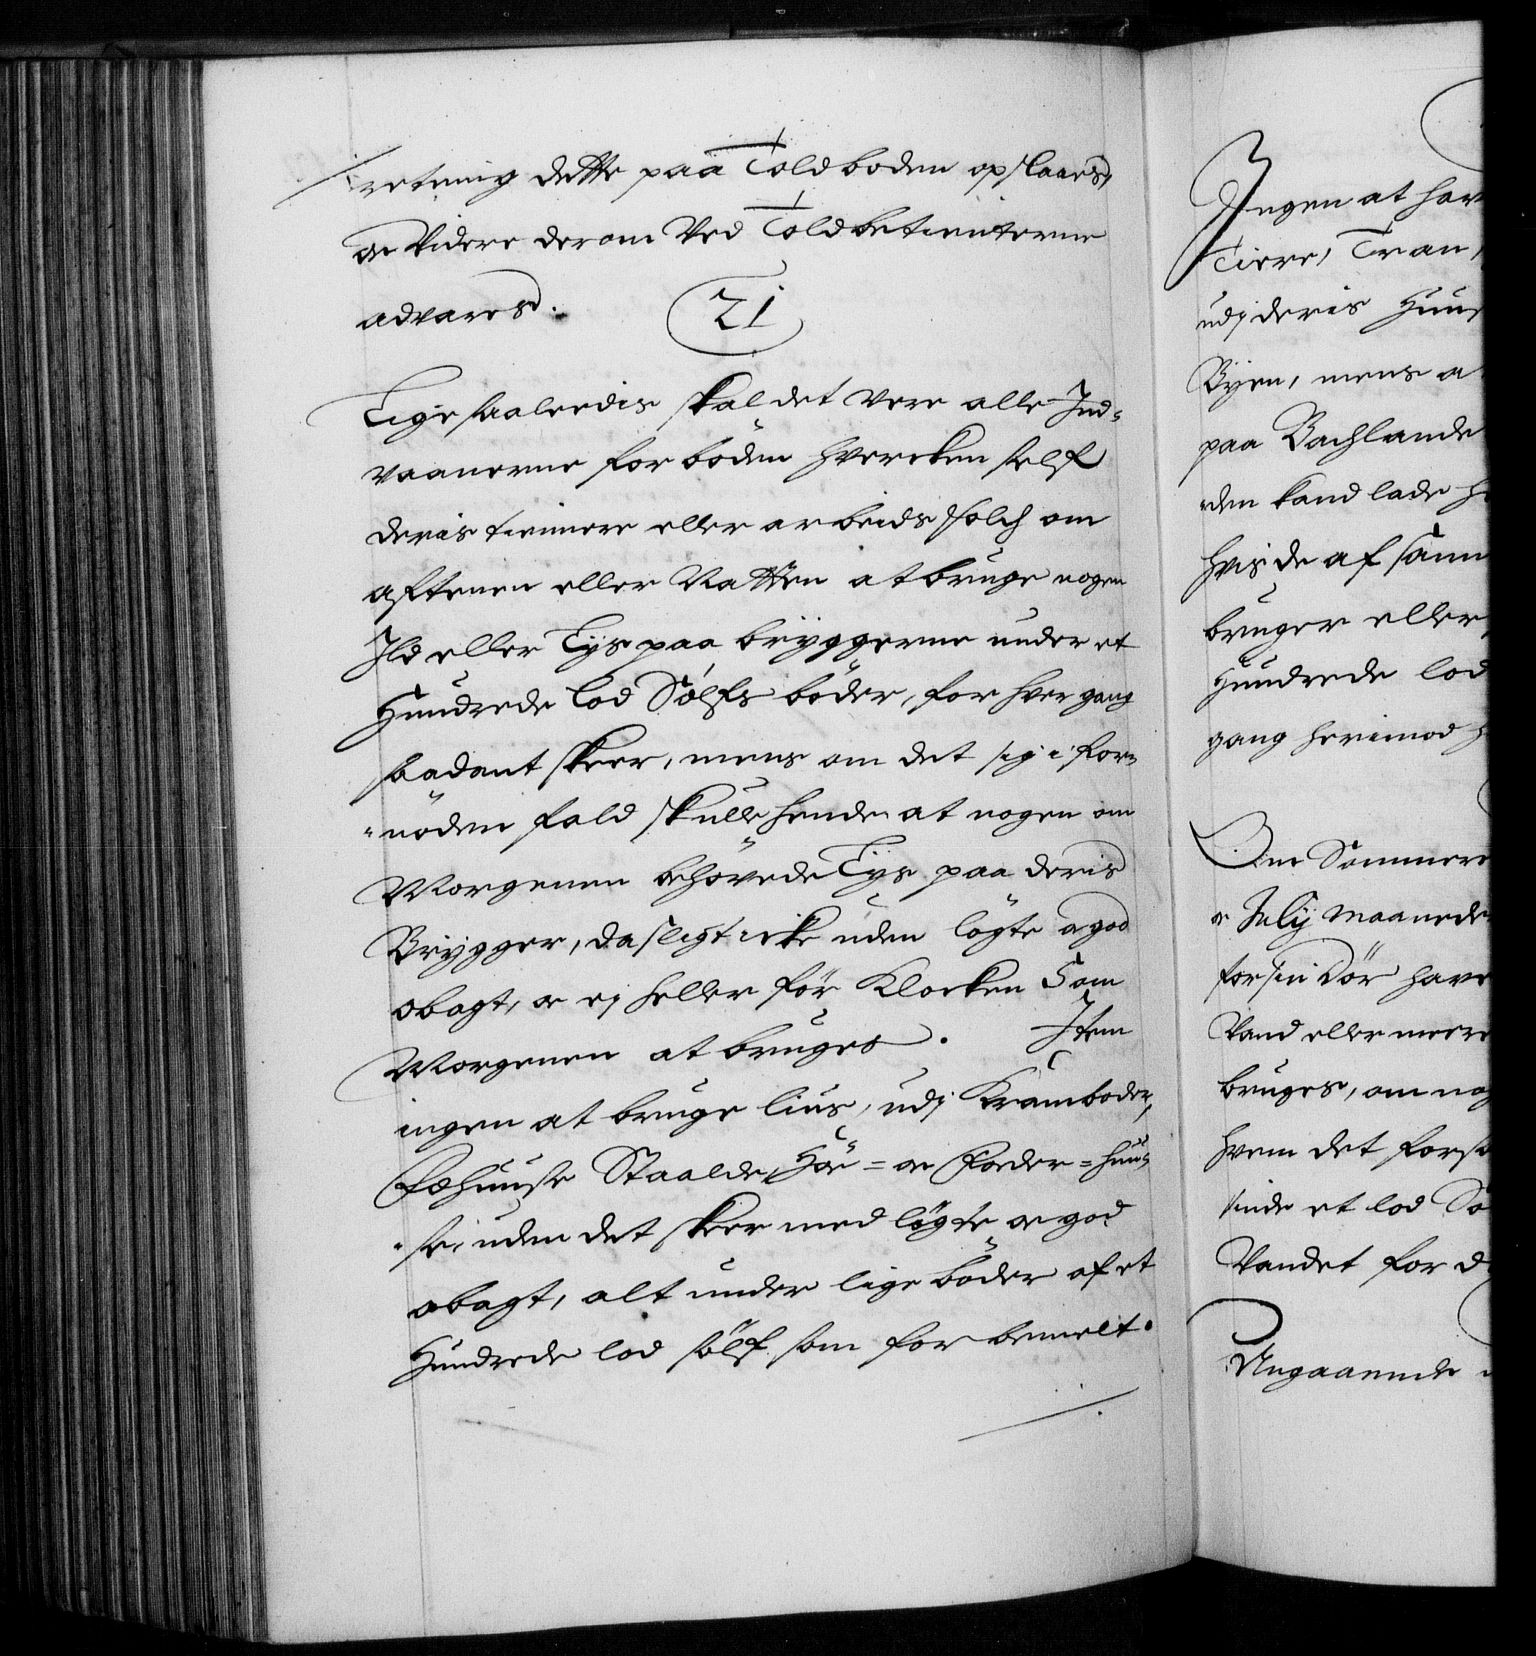 retning dette paa Toldboden opslaaes,
oc videre derom ved Toldbetienterne
advares.
21
Lige saaleedis skal det vere alle Ind-
vaanerne forböden hvercken self
deris tienniere eller arbeids folch om
aftenen eller Natten at bruge nogen
Ild eller Lÿs paa brÿggerne under et
Hundrede Lod Sölfs böder, for hver gang
saadant skeer, mens om det sig i for-
nöden fald skulle hende at nogen om
Morgenen behövede Lÿs paa deris
Brÿgger, da sligt icke uden lögte oc god
obagt, oc ej heller för Klocken 5 om
Morgenen at bruges. Item
ingen at bruge lius, udj Kramboder,
Fæhuuse Staalde, Höe= oc Foeder=huu-
se, uden det skeer med lögte oc god
obagt, alt under lige böder af et
Hundrede lod sölf som for bemelt.
Ingen at hav
Tiere, Tran,
udj deris Huus
Bÿen, mens a
paa Bachlande
den kand lade h
hvis de af sam
bruger eller
Hundrede lod
gang herimod h
Om Sommere
oc Julÿ Maanede
for sin Dör have
Vand eller meere
bruges, om nog
hvem det fors
sinde et lod Sö
Vandet for d
Angaaende